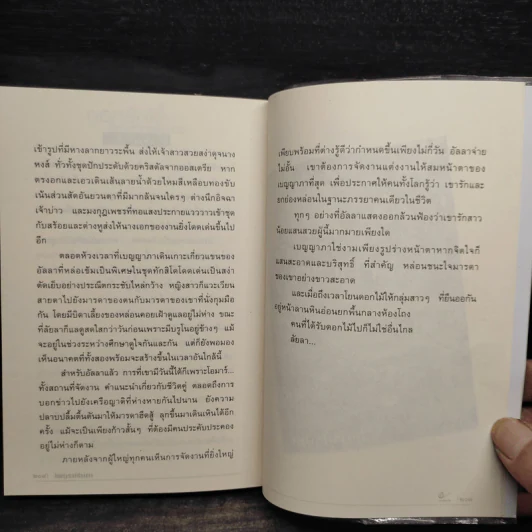 เข้ารูปที่มีหางลากยาวระพื้น ส่งให้เจ้าสาวสวยสง่าดุจนาง
หงส์ ทั่วทั้งชุดปักประดับด้วยคริสตัลจากออสเตรีย หาก
ตรงอกและเอวเดินเส้นลายน้ำด้วยไหมสีเหลือบทองขับ
เน้นส่วนสัดอันยวนตาที่มีมากล้นจนใครๆ ต่างนึกอิจฉา
เจ้าบ่าว และมงกุฎเพชรที่ทอแสงประกายแวววาวเข้าชุด
กับสร้อยและต่างหูส่งให้นางเอกของงานยิ่งโดดเด่นขึ้นไป
อีก
ตลอดห้วงเวลาที่เบญญาภาเดินเกาะเกี่ยวแขนของ
อัลลาที่หล่อเข้มเป็นพิเศษในชุดทักสิโดโดดเด่นเป็นสง่า
ตัดเย็บอย่างประณีตกระชับไหล่กว้าง หญิงสาวก็แวะเวียน
สายตาไปยังมารดาของตนกับมารดาของเขาที่นั่งกุมมือ
กัน โดยมีบิดาเลี้ยงของหล่อนคอยเฝ้าดูแลอยู่ไม่ห่าง ขณะ
ที่ลัยลาก็แลดูสดใสกว่าวันก่อนเพราะมีบรูโนอยู่ข้างๆ แม้
จะอยู่ในช่วงระหว่างศึกษาดูใจกันและกัน แต่ก็ยังพอมอง
เห็นอนาคตที่ทั้งสองพร้อมจะสร้างขึ้นในเวลาอันใกล้นี้
สำหรับอัลลาแล้ว การที่เขามีวันนี้ได้ก็เพราะโอมาร์...
ทั้งสถานที่จัดงาน คำแนะนำเกี่ยวกับชีวิตคู่ ตลอดถึงการ
บอกข่าวไปยังเครือญาติที่ห่างหายกันไปนาน ยังความ
ปลาบปลื้มตื้นตันมาให้มารดาฮึดสู้ ลุกขึ้นมาเดินเหินได้อีก
ครั้ง แม้จะเป็นเพียงก้าวสั้นๆ ที่ต้องมีคนประคับประคอง
อยู่ไม่ห่างก็ตาม
ภายหลังจากผู้ใหญ่ทุกคนเห็นการจัดงานที่ยิ่งใหญ่
เพียบพร้อมที่ต่างรู้ดีว่ากำหนดขึ้นเพียงไม่กี่วัน อัลลาจ่าย
ไม่อั้น เขาต้องการจัดงานแต่งงานให้สมหน้าตาของ
เบญญาภาที่สุด เพื่อประกาศให้คนทั้งโลกรู้ว่า เขารักและ
ยกย่องหล่อนในฐานะภรรยาคนเดียวในชีวิต
ทุกๆ อย่างที่อัลลาแสดงออกล้วนฟ้องว่าเขารักสาว
น้อยแสนสวยผู้นี้มากมายเพียงใด
เบญญาภาใช่งามเพียงรูปร่างหน้าตาหากจิตใจก็
แสนสะอาดและบริสุทธิ์ ที่สำคัญ หล่อนชนะใจมารดา
ของเขาอย่างขาวสะอาด
และเมื่อถึงเวลาโยนดอกไม้ให้กลุ่มสาวๆ ที่ยืนออกัน
อยู่หน้าลานหินอ่อนยกพื้นกลางห้องโถง
คนที่ได้รับดอกไม้ไปก็ไม่ใช่อื่นไกล
ลัยลา...